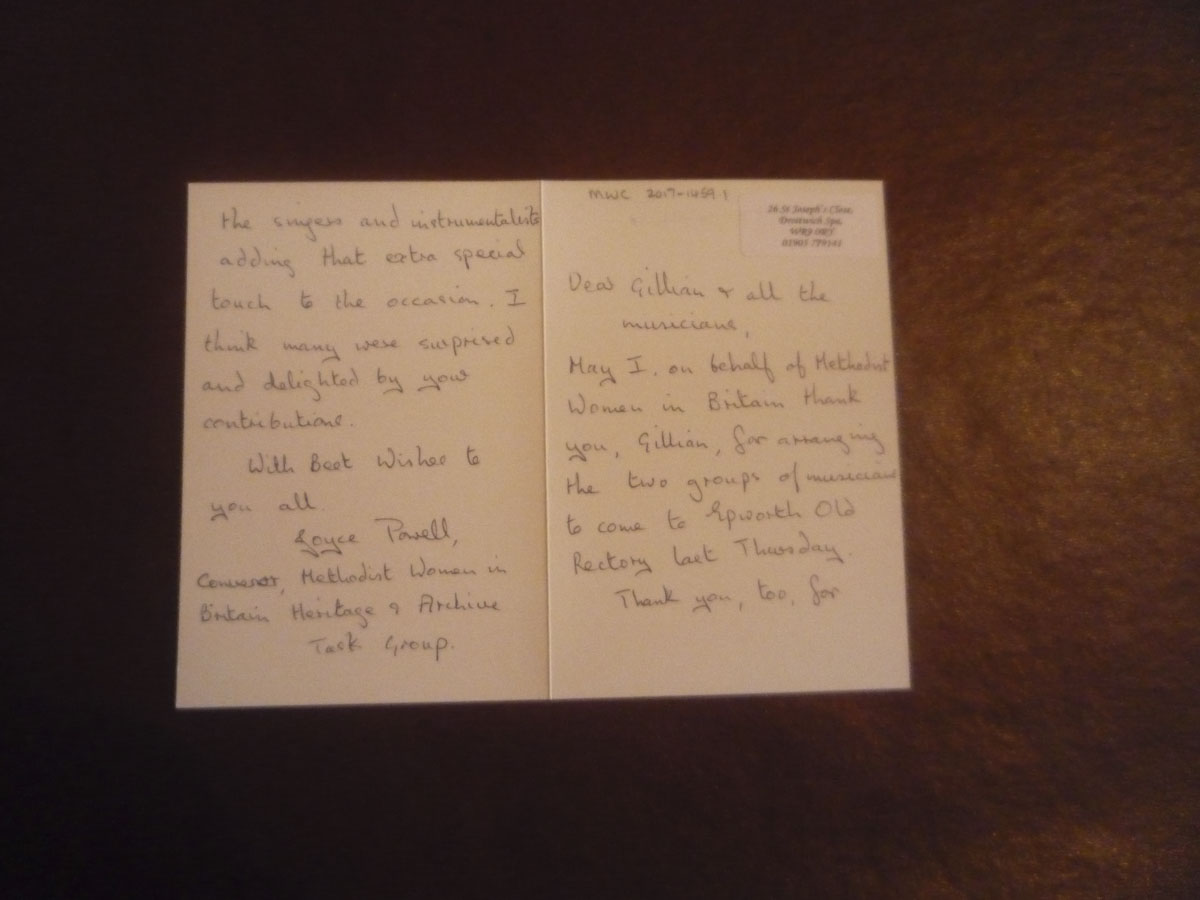 MWC 2017-1459.1
26 St Joseph's Close,
Droitwich Spa,
WR9
01905
Dear Gillian & all the
musicians,
May I, on behalf of Methodist
Women in Britain thank
you, Gillian, for arranging
the two groups of musicians
to come to Epworth Old
Rectory last Thursday.
Thank you, too, for
the singers and instrumentalists
adding that extra special
touch to the occasion. I
think many were surprised
and delighted by your
contributions.
With Best Wishes to
you all.
Joyce Powell,
Convenor, Methodist Women in
Britain Heritage & Archive
Task Group.